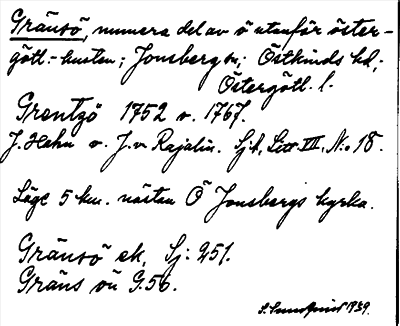 Gränsö, numera del av ö utanför öster-
götl.-kusten; Jonsberg sn; Östkinds hd;
Östergötl. l.
Grentzö 1752 o. 1767.
J. Hahn o. J. v. Rajalin. Sjk, Litt VII, N:o 18.
Läge 5 km. nästan Ö Jonsbergs kyrka.
Gränsö ek, Sj: 251.
Gräns ön G.56.
S. Sundqvist 1939.